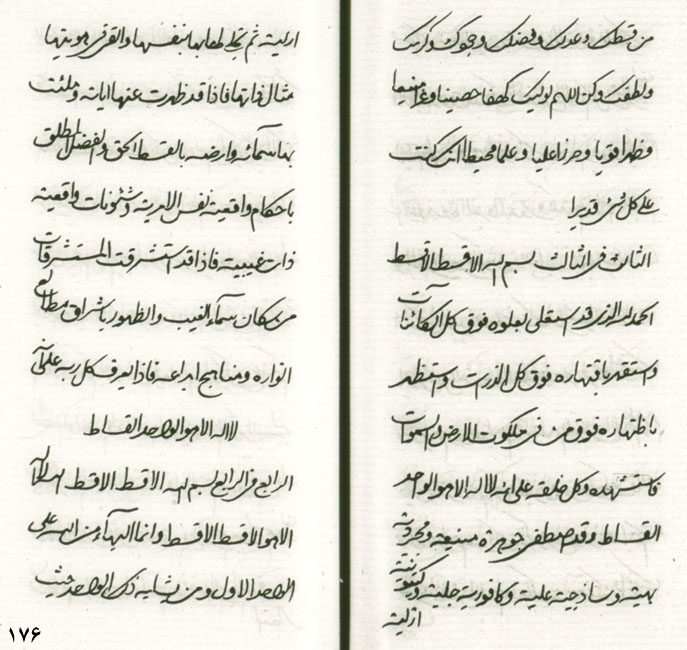 من قسطك وعدلك وفضلك وجودك وكرمك
ولطفك وكن اللهم لوليك كهفا حصينا وغرا منيعا
وظهرا قويا وحرزا عليا وعلما محيطا انك كنت
على كل شئ قديرا
الثالث فى الثالث بسم الله الاقسط الاقسط
الحمد لله الذى قد استعلى بعلوه فوق كل الكائنات
واستقهر باقتهاره فوق كل الذرات واستظهر
باظتهاره فوق من فى ملكوت الارض والسموات
فاستشهده وكل خلقه على انه لا اله الا هو الواحد
القساط وقد اصطفى جوهرة منيعة ومجردة
بهيته وساذجية عليته وكافورية جليته وكينونيته
ازلية
ازلية ثم تجلى لها بها بنفسها والقى فى هويتها
مثال ذاتها فاذا قد ظهرت عنها اياته وملئت
بها سمائه وارضه بالقسط الحق والفضل المطلق
باحكام واقعية نفس الامرية وشئونات واقعية
ذات غيبية فاذا قد استشرقت المستشرقات
من مكان سماء الغيب والظهور باشراق مطالع
انواره ومناهج ابداعه فاذا يعرف كل ربه على انه
لا اله الا هو الواحد القساط
الرابع فى الرابع بسم الله الاقسط الاقسط الله لا اله
الا هو الاقسط الاقسط وانما البهاء من الله على
الواحد الاول ومن يشابه ذلك الواحد حيث
۱۷۶